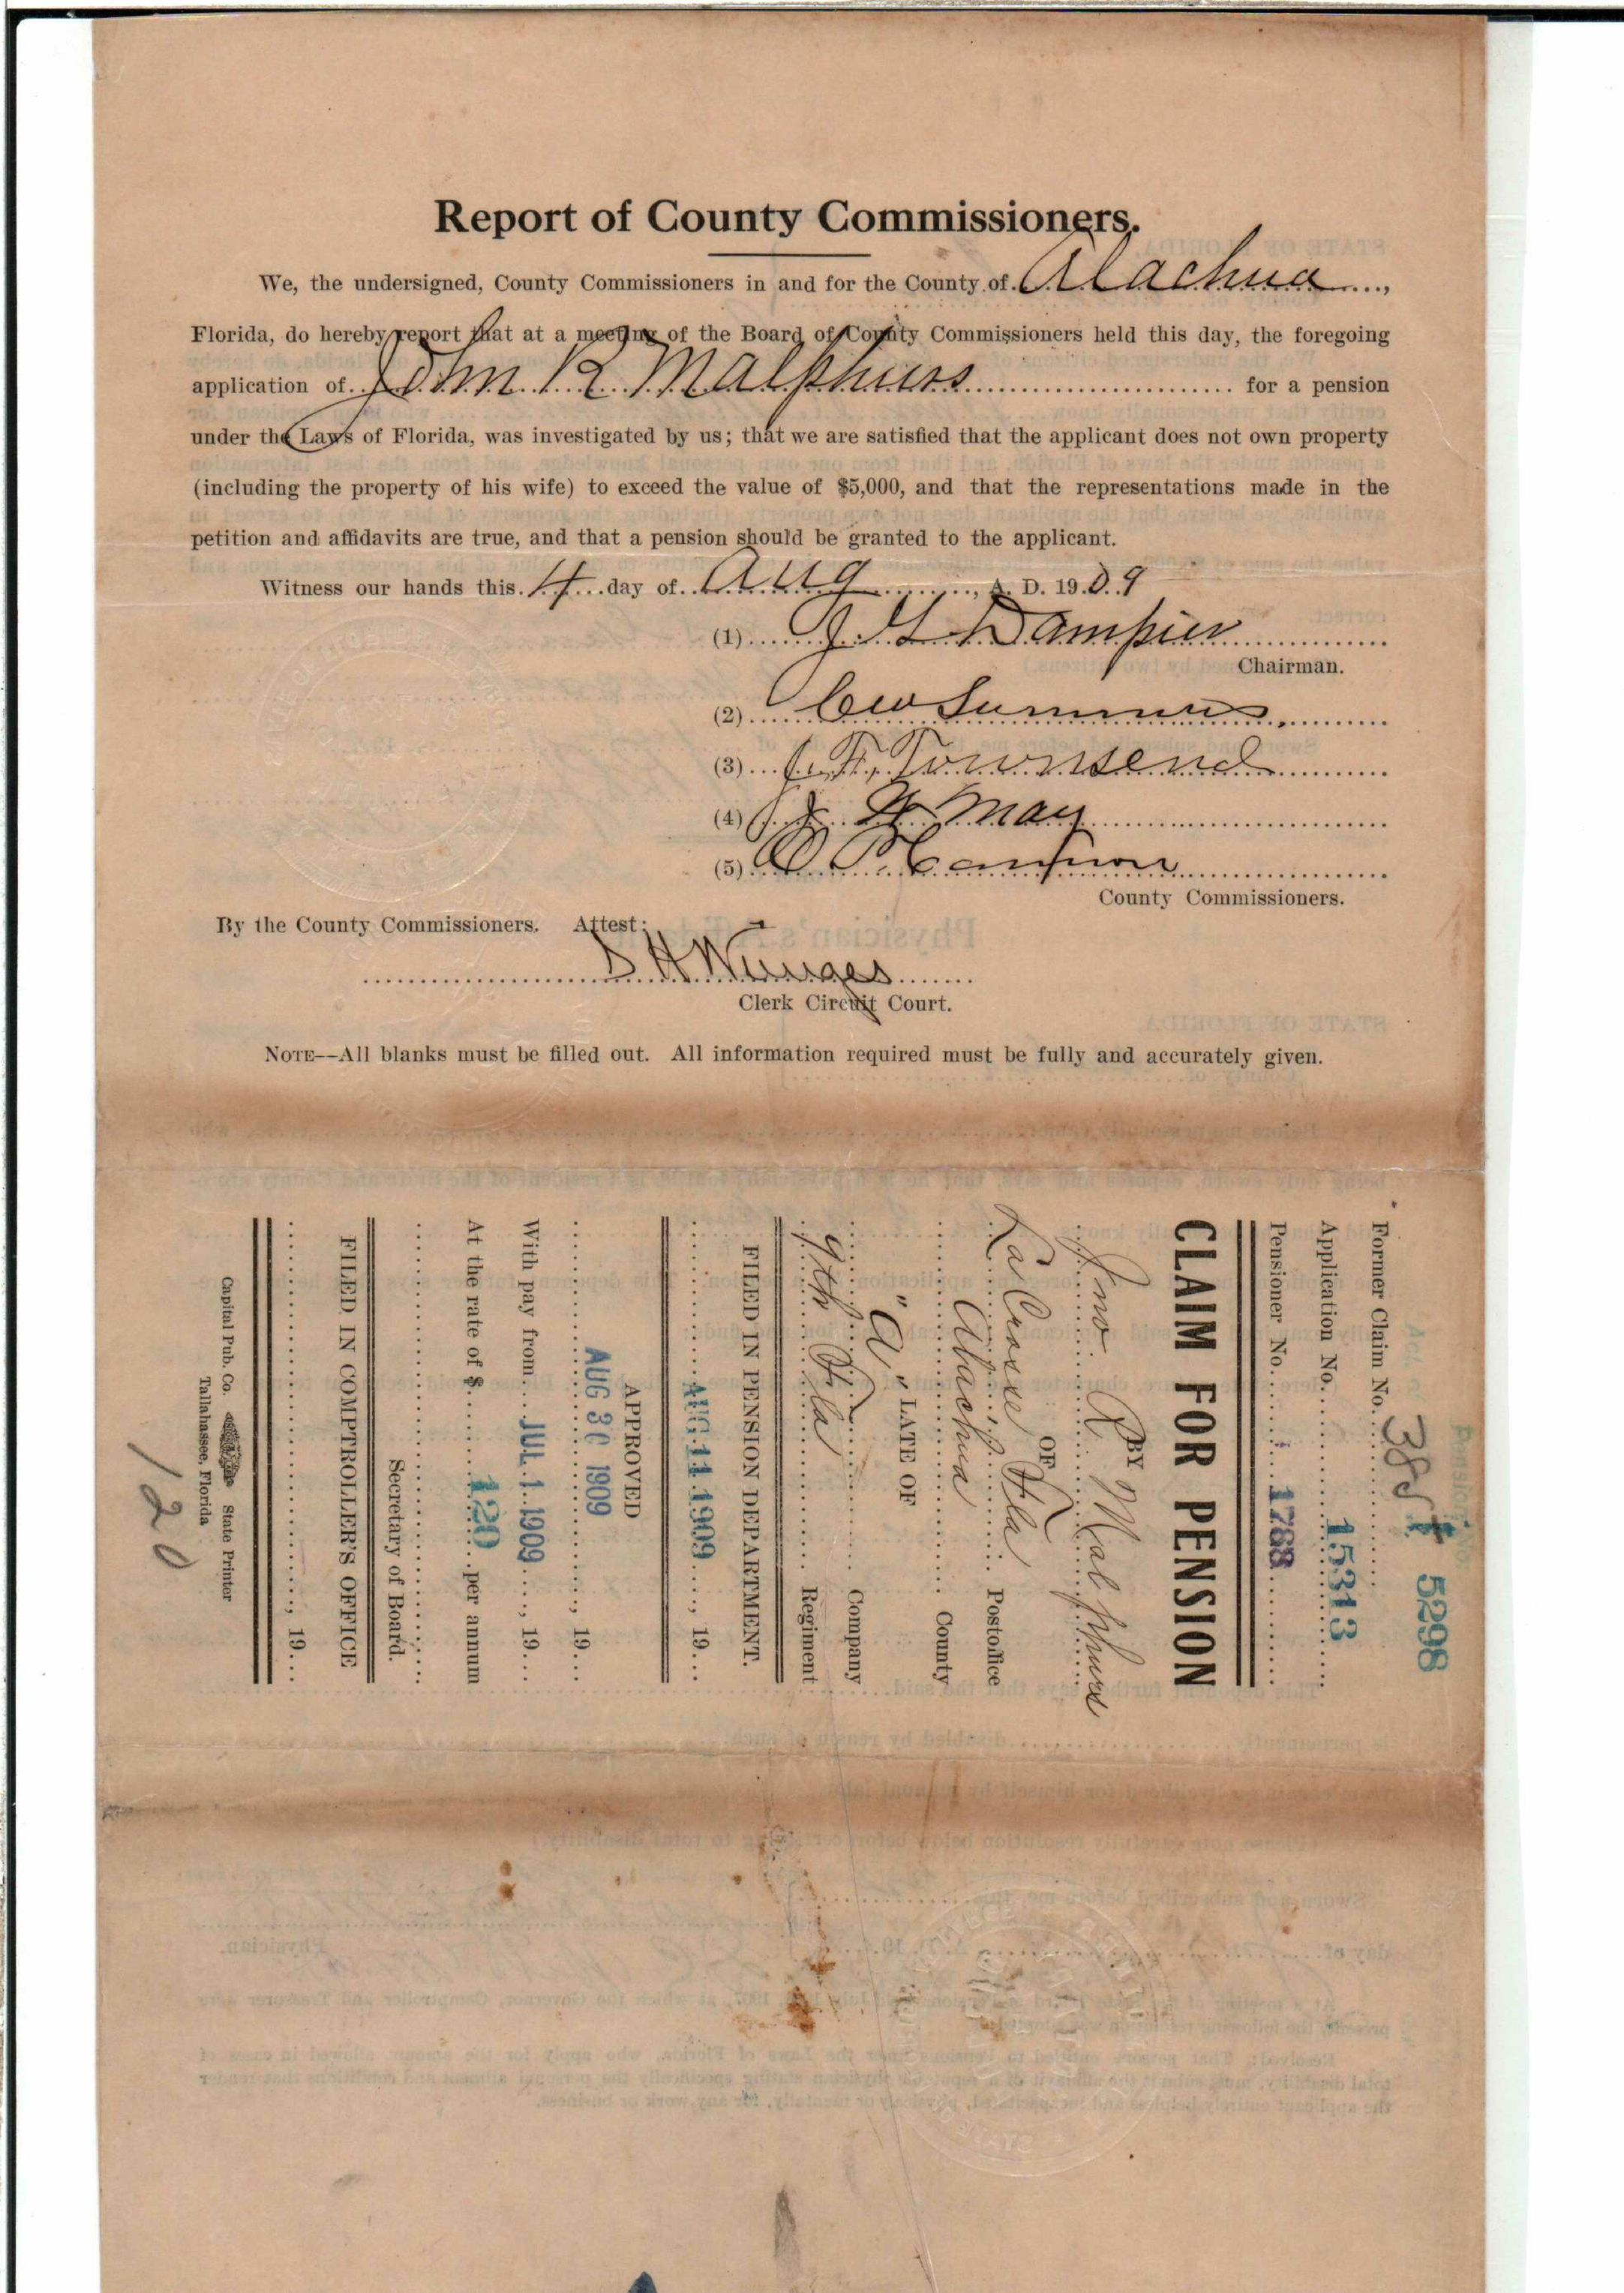 Report of County Commissioners.
We, the undersigned, County Commissioners in and for the County of Alachua,
Florida, do hereby report that at a meeting of the Board of County Commissioners held this day, the foregoing
application of John R Malphurs for a pension
under the Laws of Florida, was investigated by us; that we are satisfied that the applicant does not own property
(including the property of his wife) to exceed the value of $5,000, and that the representations made in the
petition and affidavits are true, and that a pension should be granted to the applicant.
Witness our hands this 4 day of Aug, A. D. 1909
(1) J. G. Dampier
Chairman.
(2) C W Summers.
(3) J. F. Townsend
(4) J W May
(5) O P Cannon
County Commissioners.
By the County Commissioners. Attest:
S H Wienges
Clerk Circuit Court.
NOTE--All blanks must be filled out. All information required must be fully and accurately given.
5298
Former Claim No. 385
Application No. 15313
Pensioner No. 1788
CLAIM FOR PENSION
BY
Jno. R. Malphurs
OF
La Crosse Fla Postoffice
Alachua County
"A" LATE OF
Company
9th Fla Regiment
FILED IN PENSION DEPARTMENT.
AUG 11 1909, 19...
APPROVED
AUG 30 1909, 19...
With pay from JUL 1 1909, 19...
At the rate of $ 120 per annum
Secretary of Board.
FILED IN COMPTROLLER'S OFFICE
, 19...
Capital Pub. Co. State Printer
Tallahassee, Florida
120